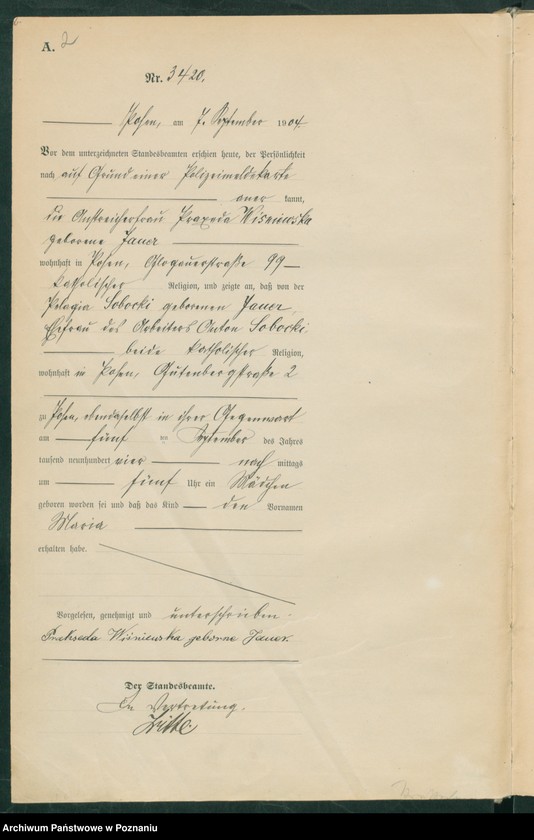 A. 2
Nr. 3420.
Posen, am 7. September 1904.
Vor dem unterzeichneten Standesbeamten erschien heute, der Persönlichkeit
nach auf Grund einer Polizeimeldekarte
aner kannt,
die Anstreicherfrau Praxeda Wisniewska
geborene Janer
wohnhaft in Posen, Glogauerstraße 99
katholischer Religion, und zeigte an, daß von der
Pelagia Sobocki geborenen Janer,
Ehefrau des Arbeiters Anton Sobocki
beide katholischer Religion,
wohnhaft in Posen, Gutenbergstraße 2
zu Posen, ebendaselbst in ihrer Gegenwart
am fünf ten September des Jahres
tausend neunhundert vier nach mittags
um fünf Uhr ein Mädchen
geboren worden sei und daß das Kind den Vornamen
Maria
erhalten habe.
Vorgelesen, genehmigt und unterschrieben.
Prakseda Wiśniewska geborne Janer.
Der Standesbeamte.
In Vertretung.
Archiwum Państwowe w Poznaniu